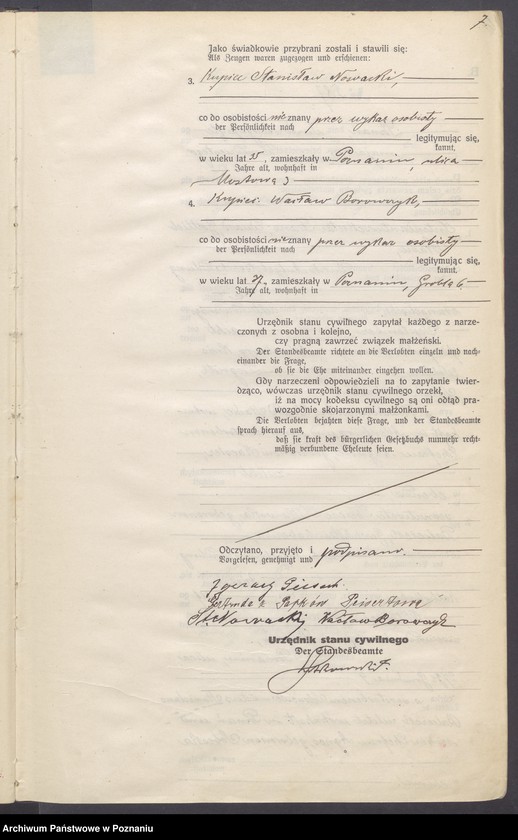 7
Jako świadkowie przybrani zostali i stawili się:
Als Zeugen waren zugezogen und erschienen:
3. Kupiec Stanisław Nowacki,
co do osobistości nieznany przez wykaz osobisty
der Persönlichkeit nach
legitymując się,
kannt,
w wieku lat 25, zamieszkały w Poznaniu, ulica
Jahre alt, wohnhaft in
Mostowa 3
4. Kupiec Wacław Borowczyk,
co do osobistości nieznany przez wykaz osobisty
der Persönlichkeit nach
legitymując się,
kannt.
w wieku lat 27, zamieszkały w Poznaniu, Grobla 6
Jahre alt, wohnhaft in
Urzędnik stanu cywilnego zapytał każdego z narze-
czonych z osobna i kolejno,
czy pragną zawrzeć związek małżeński.
Der Standesbeamte richtete an die Verlobten einzeln und nach-
einander die Frage,
ob sie die Ehe miteinander eingehen wollen.
Gdy narzeczeni odpowiedzieli na to zapytanie twier-
dząco, wówczas urzędnik stanu cywilnego orzekł,
iż na mocy kodeksu cywilnego są oni odtąd pra-
wozgodnie skojarzonymi małżonkami.
Die Verlobten bejahten diese Frage, und der Standesbeamte
sprach hierauf aus,
daß sie kraft des bürgerlichen Gesetzbuchs nunmehr recht-
mäßig verbundene Eheleute seien.
Odczytano, przyjęto i podpisano.
Vorgelesen, genehmigt und
Ignacy
St. Nowacki Wacław Borowczyk
Urzędnik stanu cywilnego
Der Standesbeamte
Archiwum Państwowe w Poznaniu